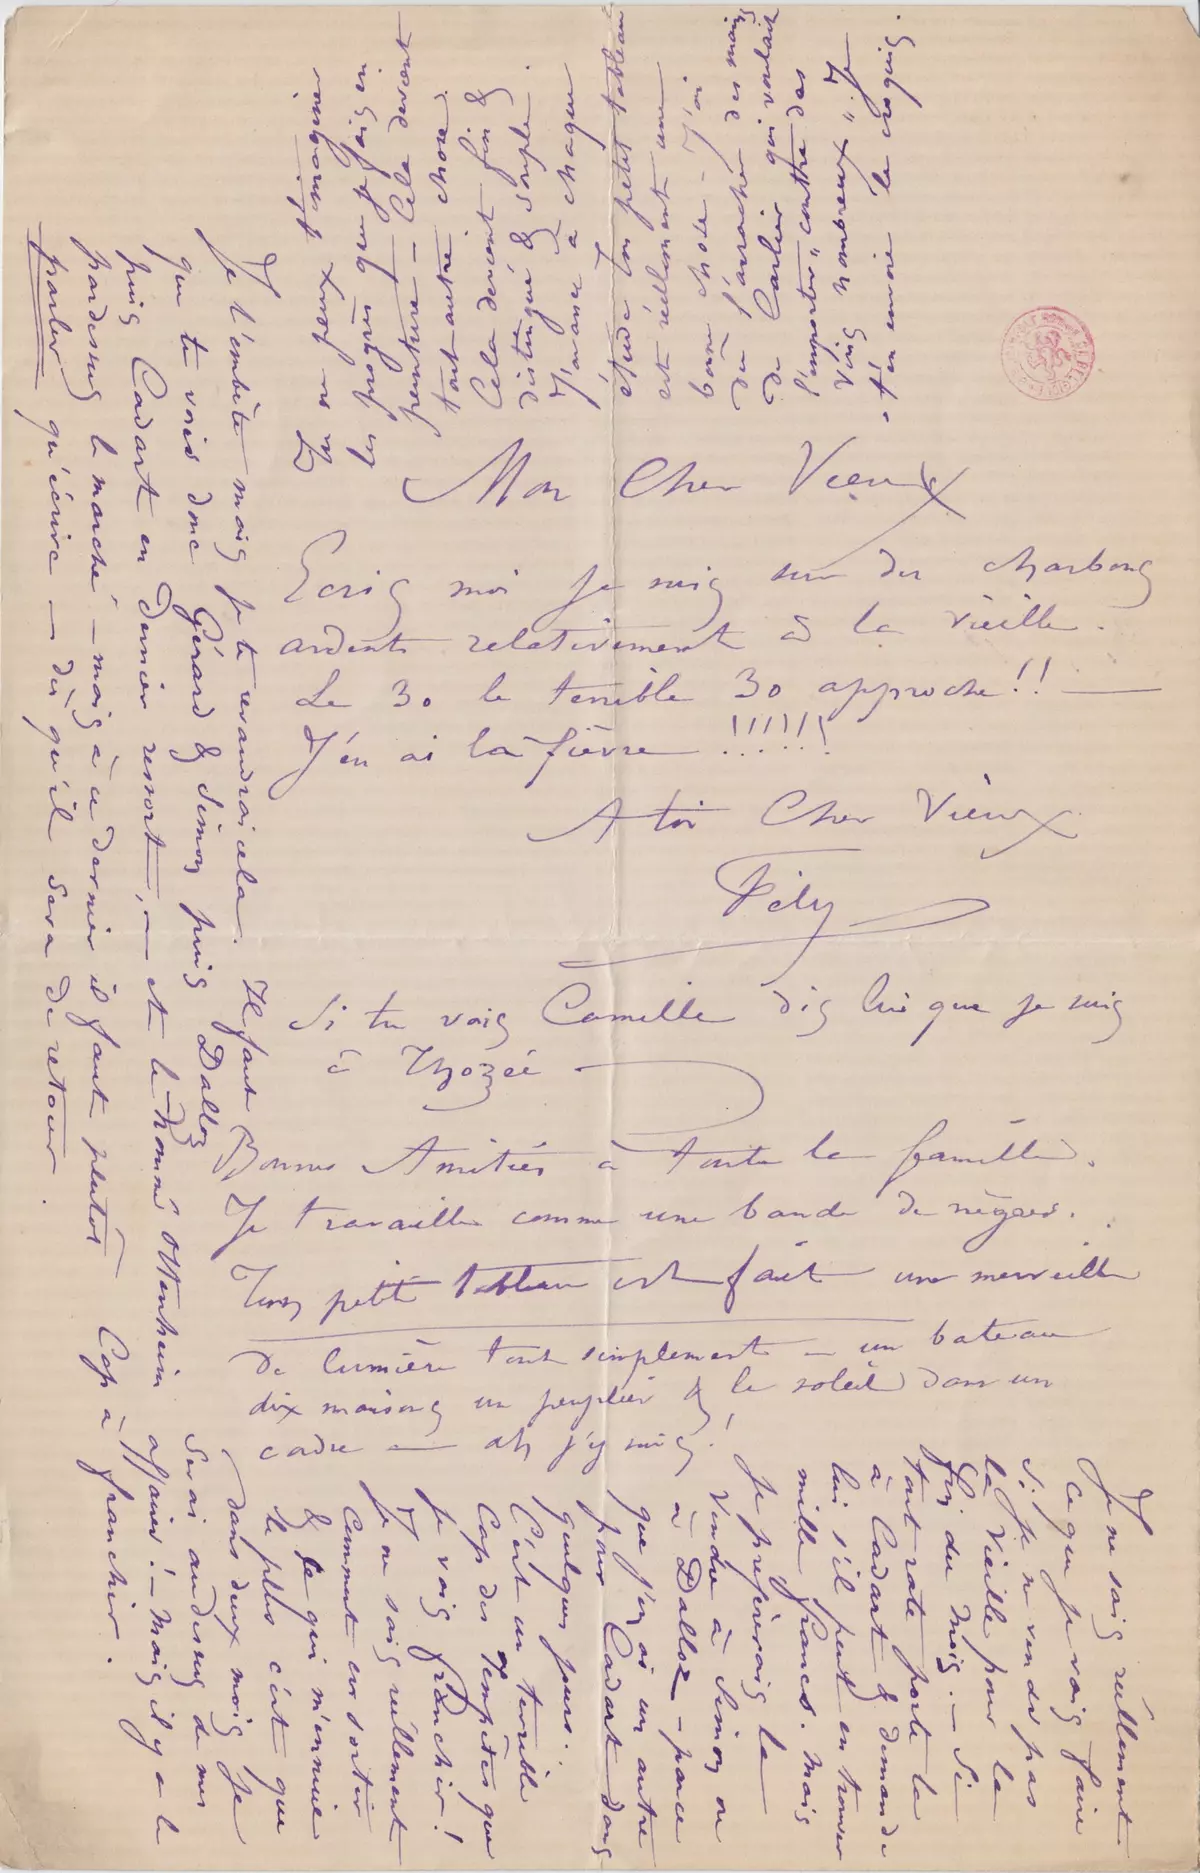 Mon Cher Vieux
Ecris moi je suis sur des charbons
ardents relativement à la vieille.
Le 30 le terrible 30 approche!! —
J'en ai la fièvre !!!!!!
A toi Cher Vieux
Fély
Si tu vois Camille dis lui que je suis
à Thozée
Bonnes Amitiés à toute la famille.
Je travaille comme une bande de nègres.
Ton petit tableau est fait une merveille
de lumière tout simplement — un bateau
dix maisons un peuplier & le soleil dans un
cadre — ah j'y suis!
Je ne sais réellement
ce que je vais faire
si je ne vends pas
la Vieille pour la
fin du mois. — Si
tout rate porte la
à Cadart & demande
lui s'il peut en trouver
mille francs. Mais
je préfèrerais la
vendre à Simon ou
à Dalloz — parce
que j'en ai un autre
pour Cadart dans
quelques jours.
C'est un terrible
Cap des Tempêtes que
je vais franchir!
Je ne sais réellement
comment en sortir
& ce qui m'ennuie
le plus c'est que
dans deux mois je
serai au dessus de mes
affaires! — Mais il y a le
Cap à franchir.
Je t'embête mais je te revaudrai cela. Il faut
que tu voies donc Gérard & Simon puis Dalloz
puis Cadart en dernier ressort, — et le nommé Ottenheim
pardessus le marché — mais à ce dernier il faut plutôt
parler qu'écrire — dès qu'il sera de retour.
en ce que je fais en
peinture — Cela devient
tout autre chose.
Cela devient fin &
distingué & souple.
J'avance à chaque
étude ton petit tableau
est réellement une
bonne chose — J'ai
dû l'arracher des mains
de Carlier qui voulait
l'emporter "contre des
Vins nombreux". Je
t'en envoie le croquis.